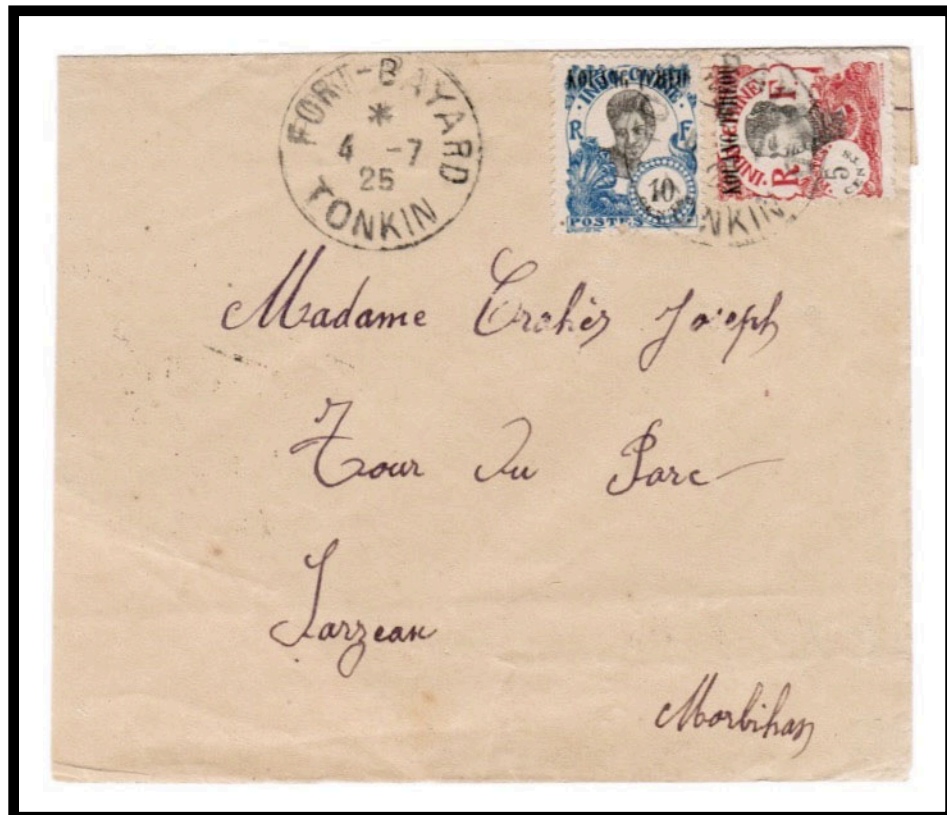 FORT-BAYARD
*
4 -7
25
TONKIN
KOUANG TCHEOU
INDOCHINE
R F
10
POSTES
KOUANG TCHEOU
INDOCHINE
R F
5
NKIN
Madame Joseph
Tour du Parc
Sarzeau
Morbihan